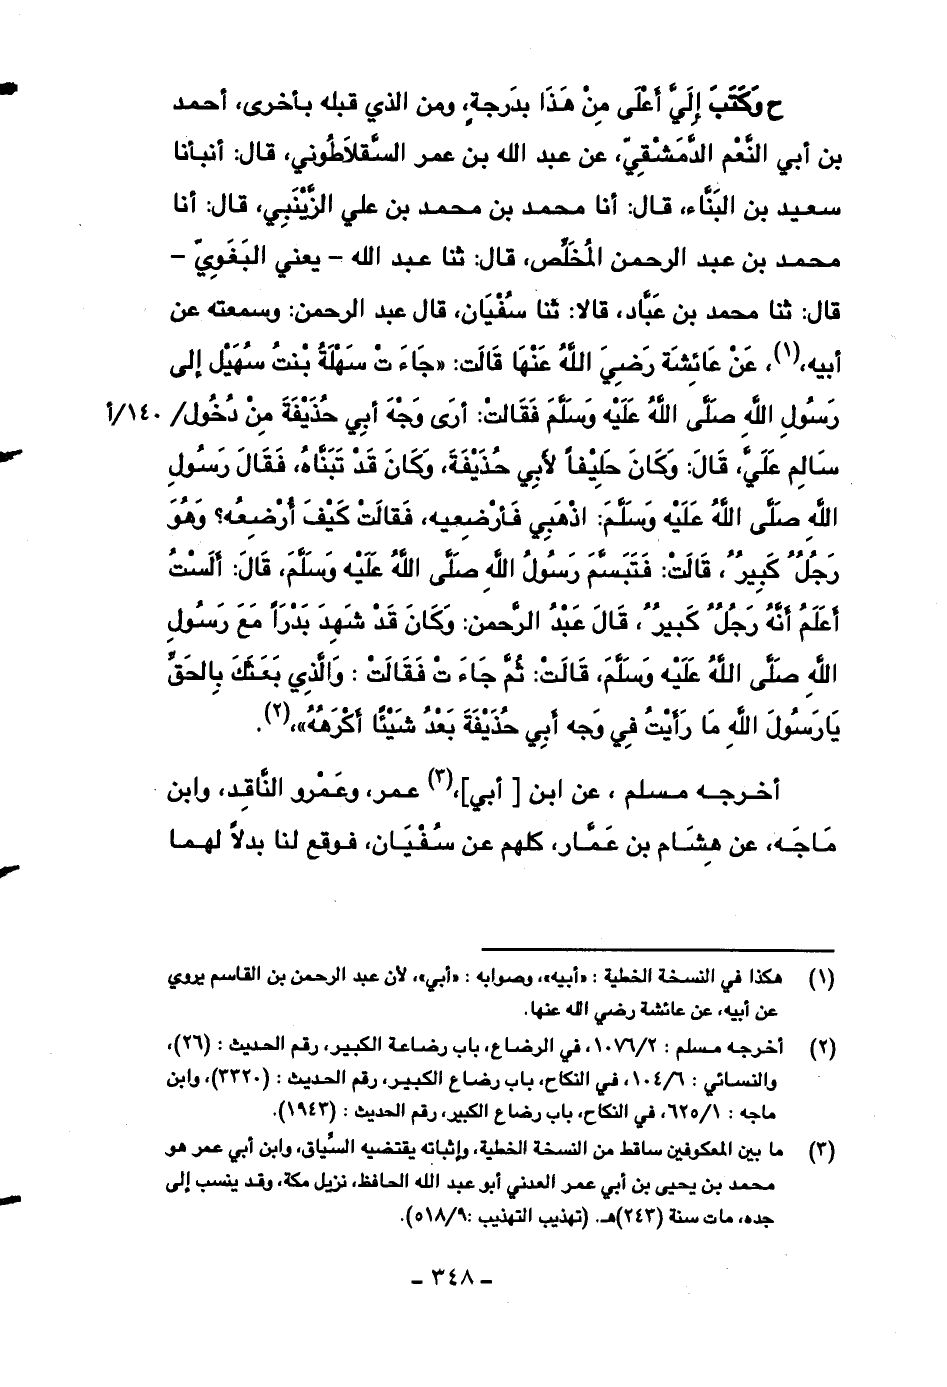 ح وَكَتَبَ إِلَيَّ أَعْلَى مِنْ هَذَا بدَرجةٍ، ومن الذي قبله بأخرى، أحمد
بن أبي النَّعْم الدَّمَشْقِيّ، عن عبد الله بن عمر السَّقلاَطُوني، قال: أنبأنا
سعيد بن البَنَّاء، قال: أنا محمد بن محمد بن علي الزَّيْنَبِي، قال: أنا
محمد بن عبد الرحمن المُخَلِّص، قال: ثنا عبد الله – يعني البَغَوِيّ –
قال: ثنا محمد بن عَبَّاد، قالا: ثنا سُفْيَان، قال عبد الرحمن: وسمعته عن
أبيه،(١)، عَنْ عَائِشَة رَضِيَ اللَّهُ عَنْهَا قَالَت: «جَاءَ تْ سَهْلَةُ بْنتُ سُهَيْل إلى
رَسُولِ اللَّهِ صَلَّى اللَّهُ عَلَيْهِ وَسَلَّمَ فَقَالتْ: أَرَى وَجْهَ أبي حُذَيْفَةَ مِنْ دُخُول/ ١٤٠/أ
سَالِم عَلَيَّ، قَالَ: وَكَانَ حَلِيْفاً لأبِي حُذَيْفَةَ، وَكَانَ قَدْ تَبَنَّاهُ، فَقَالَ رَسُولِ
اللَّهِ صَلَّى اللَّهُ عَلَيْهِ وَسَلَّمَ: اذْهَبِي فَأرْضِعِيه، فَقالَتْ كَيْفَ أُرْضِعُه؟ وَهُوَ
رَجُلٌ كَبِيرٌ، قَالَتْ: فَتَبَسَّمَ رَسُولُ اللَّهِ صَلَّى اللَّهُ عَلَيْهِ وَسَلَّمَ، قَالَ: أَلَسْتُ
أَعَلَمُ أَنَّهُ رَجُلٌ كَبيرٌ، قَالَ عَبْدُ الرَّحمن: وَكَانَ قَدْ شَهِدَ بَدْرَاً مَعَ رَسُولِ
اللَّهِ صَلَّى اللَّهُ عَلَيْهِ وَسَلَّمَ، قَالَتْ: ثُمَّ جَاءَ تْ فَقَالَتْ : وَالَّذِي بَعَثَكَ بِالحَقِّ
يَارَسُولَ اللَّهِ مَا رَأَيْتُ فِي وَجه أَبي حُذَيْفَةَ بَعْدُ شَيْئًا أَكْرَهُهُ»،(٢).
أخرجه مسلم ، عن ابن [ أبي]،(٣) عمر، وعَمْرو النَّاقِد، وابن
مَاجَه، عن هِشَام بن عَمَّار، كلهم عن سُفْيَان، فوقع لنا بدلاً لهما
(١) هكذا في النسخة الخطية : «أبيه»، وصوابه : «أبي»، لأن عبد الرحمن بن القاسم يروي
عن أبيه، عن عائشة رضي الله عنها.
(٢) أخرجه مسلم : ١٠٧٦/٢، في الرضاع، باب رضاعة الكبير، رقم الحديث : (٢٦)،
والنسائي : ١٠٤/٦، في النكاح، باب رضاع الكبير، رقم الحديث : (٣٣٢٠)، وابن
ماجه : ٦٢٥/١، في النكاح، باب رضاع الكبير، رقم الحديث : (١٩٤٣).
(٣) ما بين المعكوفين ساقط من النسخة الخطية، وإثباته يقتضيه السِّياق، وابن أبي عمر هو
محمد بن يحيى بن أبي عمر العدني أبو عبد الله الحافظ، نزيل مكة، وقد ينسب إلى
جده، مات سنة (٢٤٣)هـ. (تهذيب التهذيب :٥١٨/٩).
– ٣٤٨ –